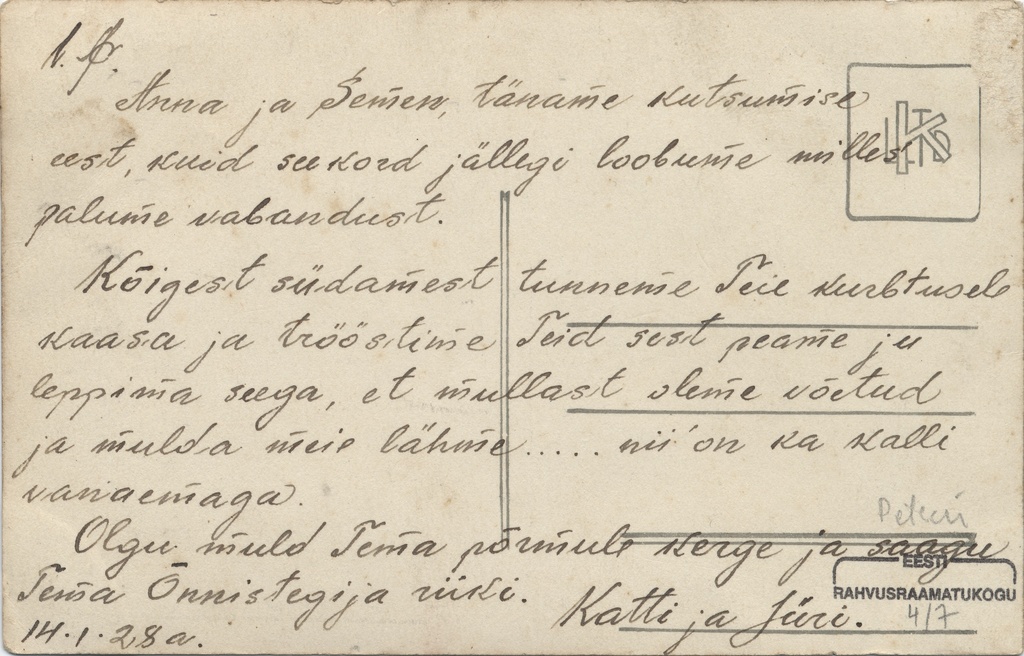 A. P.
Anna ja Semen, täname kutsumise
eest, kuid seekord jällegi loobume milles
palume vabandust.
Kõigest südamest tunneme Teie kurbtusele
kaasa ja trööstime Teid sest peame ju
leppima seega, et mullast oleme võetud
ja mulda meie lähme..... nii on ka kalli
vanaemaga.
Olgu muld Tema põrmule kerge ja saagu
Tema Õnnistegija riiki.
Katti ja Jüri.
14.1.28a.
EESTI
RAHVUSRAAMATUKOGU
4/7